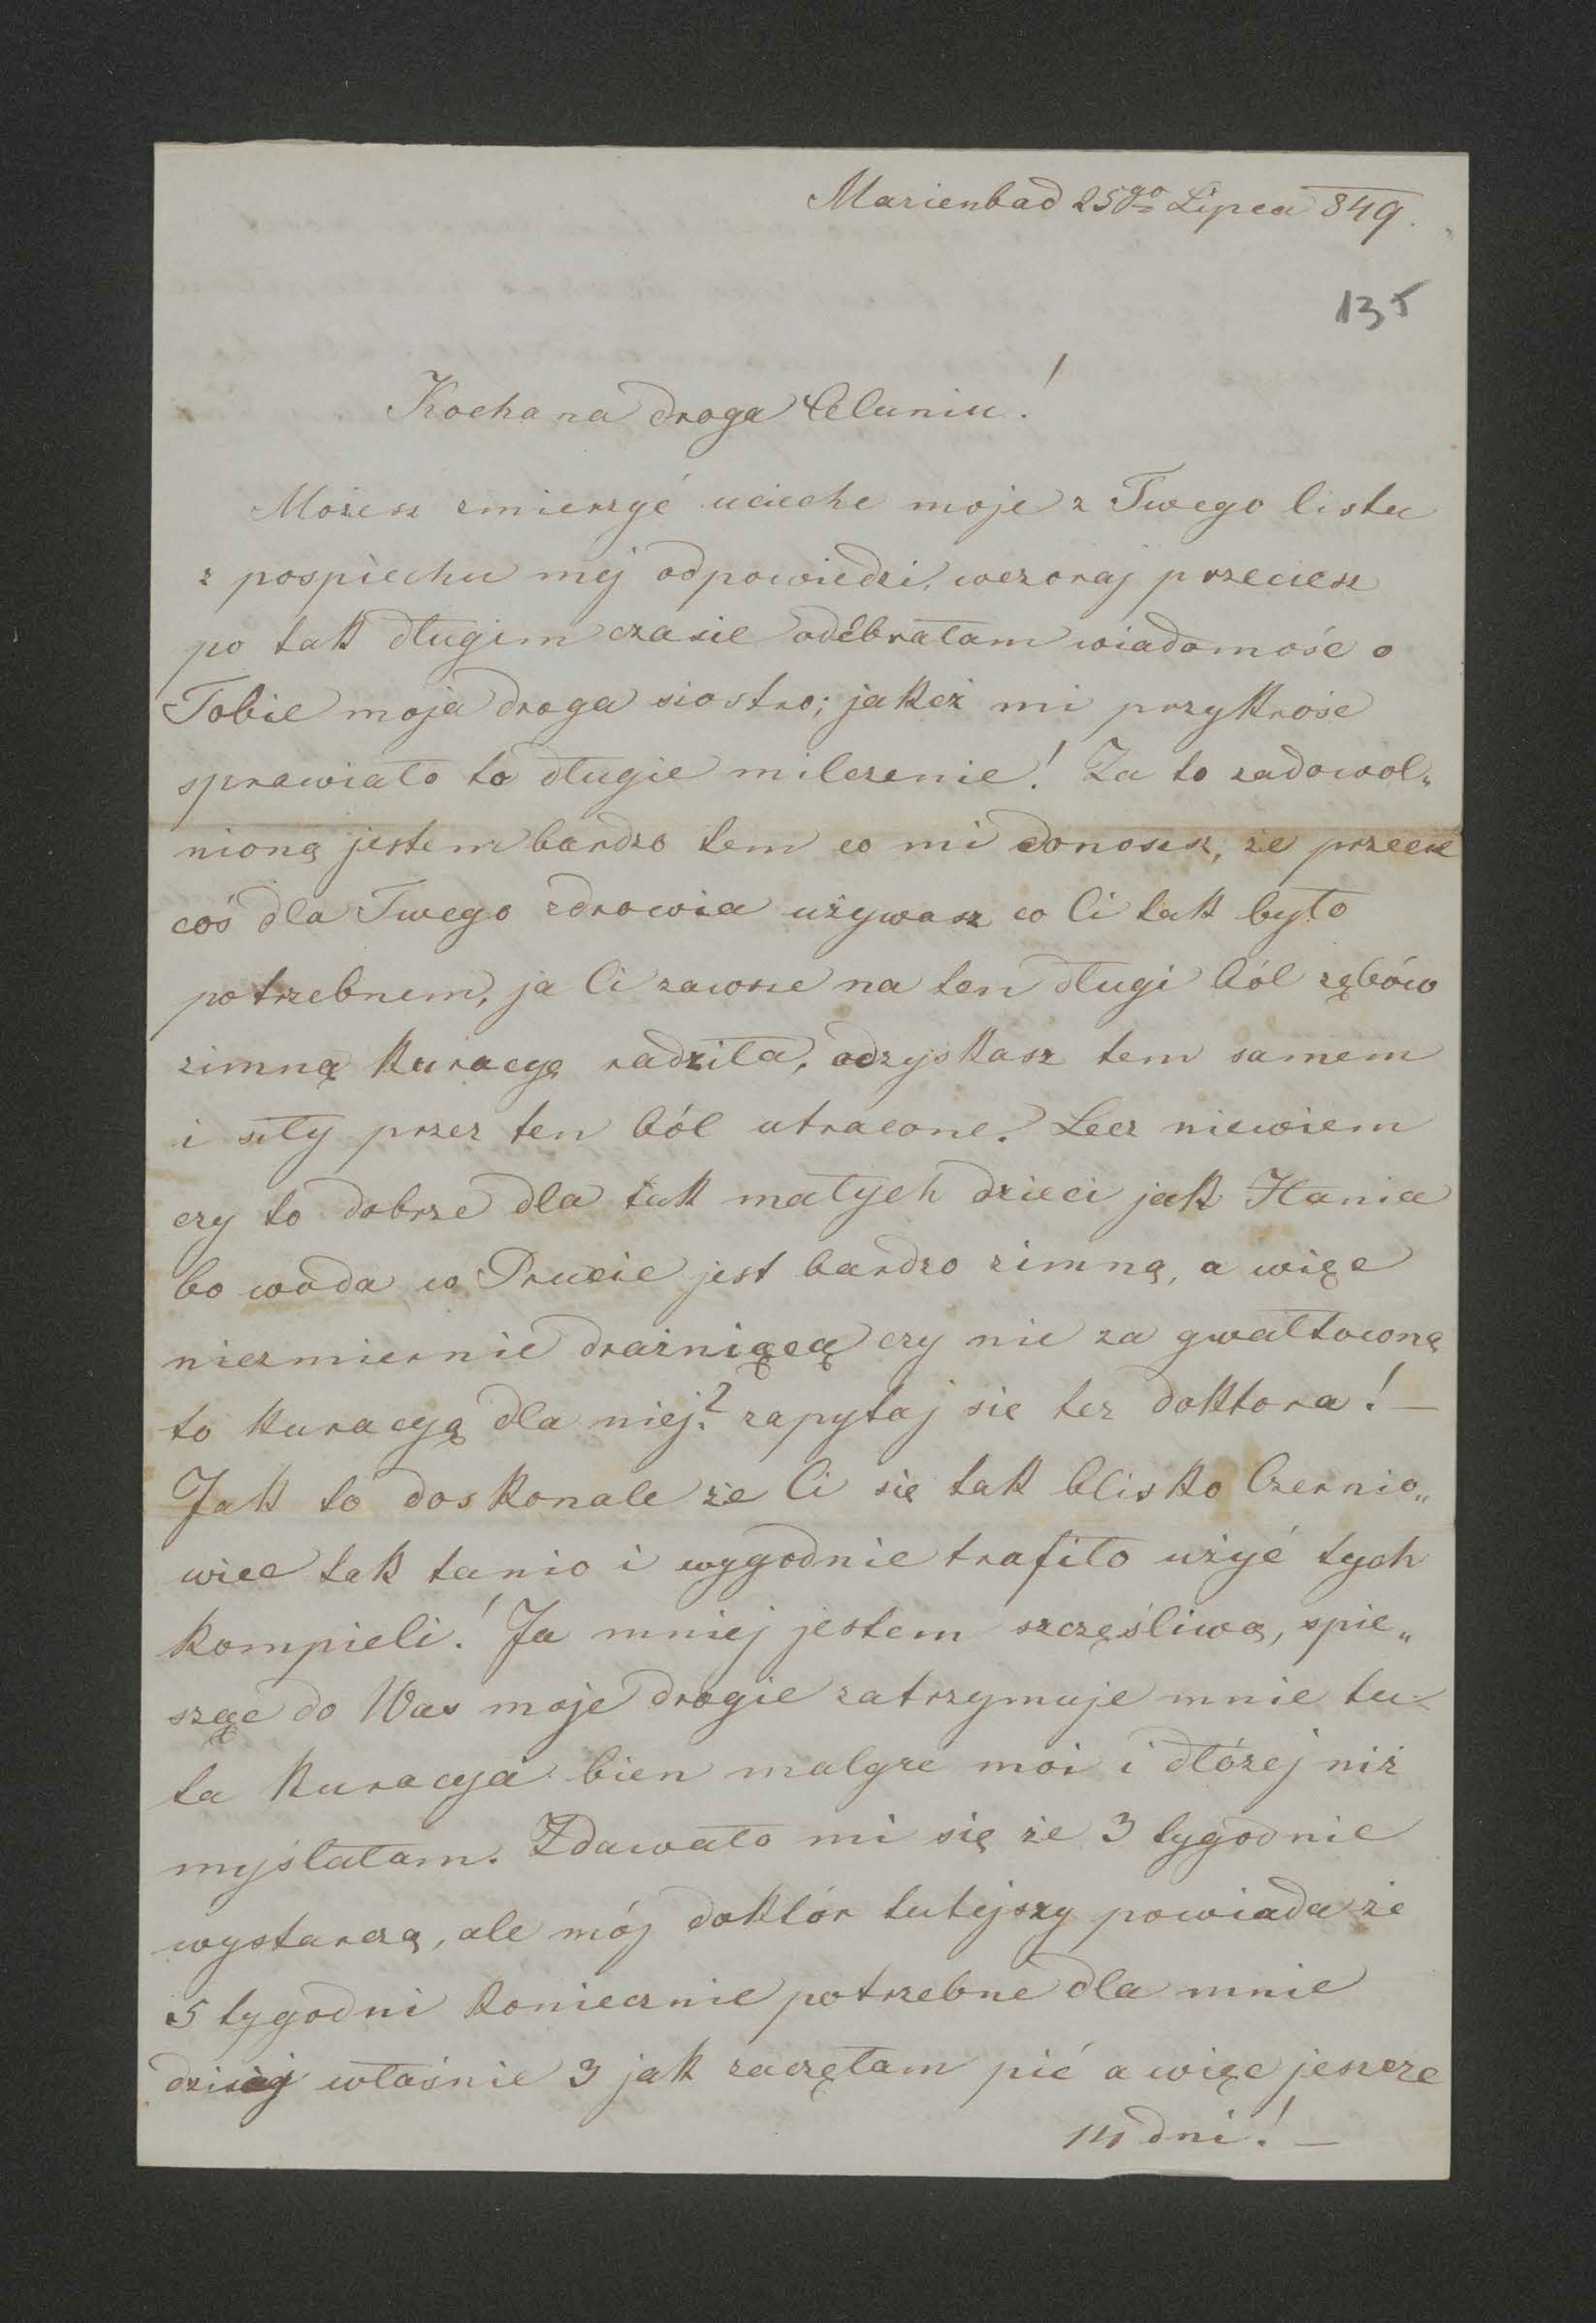 Marienbad 25go Lipca 849.
135
Kochana droga Celuniu!
Możesz zmierzyć uciechę moję z Twego listu
z pospiechu mej odpowiedzi, wczoraj przeciesz
po tak długim czasie odebrałam wiadomość o
Tobie moja droga siostro; jakeż mi przykrość
sprawiało to długie milczenie! Za to zadowol„
nioną jestem bardzo tem co mi donosisz, że przecie
coś dla Twego zdrowia używasz co Ci tak było
potrzebnem, ja Ci zawsze na ten długi ból zębów
zimną kuracyę radziła, odzyskasz tem samem
i siły przez ten ból utracone. Lecz niewiem
czy to dobrze dla tak małych dzieci jak Hania
bo woda w Prucie jest bardzo zimną, a więc
niezmiernie drażniącą czy nie za gwałtowną
to kuracyą dla niej? zapytaj się tez doktora! —
Jak to doskonale że Ci się tak blisko Czernio„
wiec tak tanio i wygodnie trafiło użyć tych
kompieli! Ja mniej jestem szczęśliwą, spie„
sząc do Was moje drogie zatrzymuje mnie tu
ta kuracya bien malgre moi i dłózej niż
myślałam. Zdawało mi się że 3 tygodnie
wystarczą, ale mój doktór tutejszy powiada że
5 tygodni koniecznie potrzebne dla mnie
dzisiaj właśnie 3 jak zaczęłam pić a więc jeszcze
14 dni! —